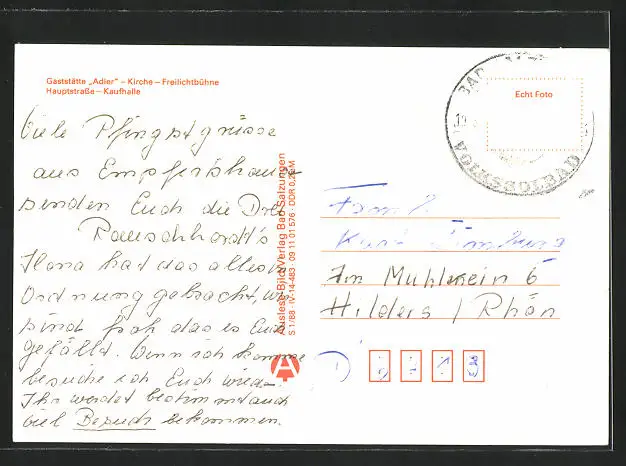 Gaststätte „Adler" – Kirche – Freilichtbühne
Hauptstraße – Kaufhalle
Echt Foto
BAD
VOLKSSOLBAD
Viele Pfingstgrüsse
aus Empfertshause
senden Euch die Drei
Rauschhardt's
Ilona hat das alles in
Ordnung gebracht, wir
sind froh das es Euch
gefällt. Wenn ich komme
besuche ich Euch wieder.
Ihr werdet bestimmt auch
viel Besuch bekommen.
Auslese-Bild-Verlag Bad Salzungen
S 1/88 · IV-14-483 · 09 11 01 576 · DDR 0,20 M
A
Fam.
Kurt
Am Mühlrein 6
Hilders / Rhön